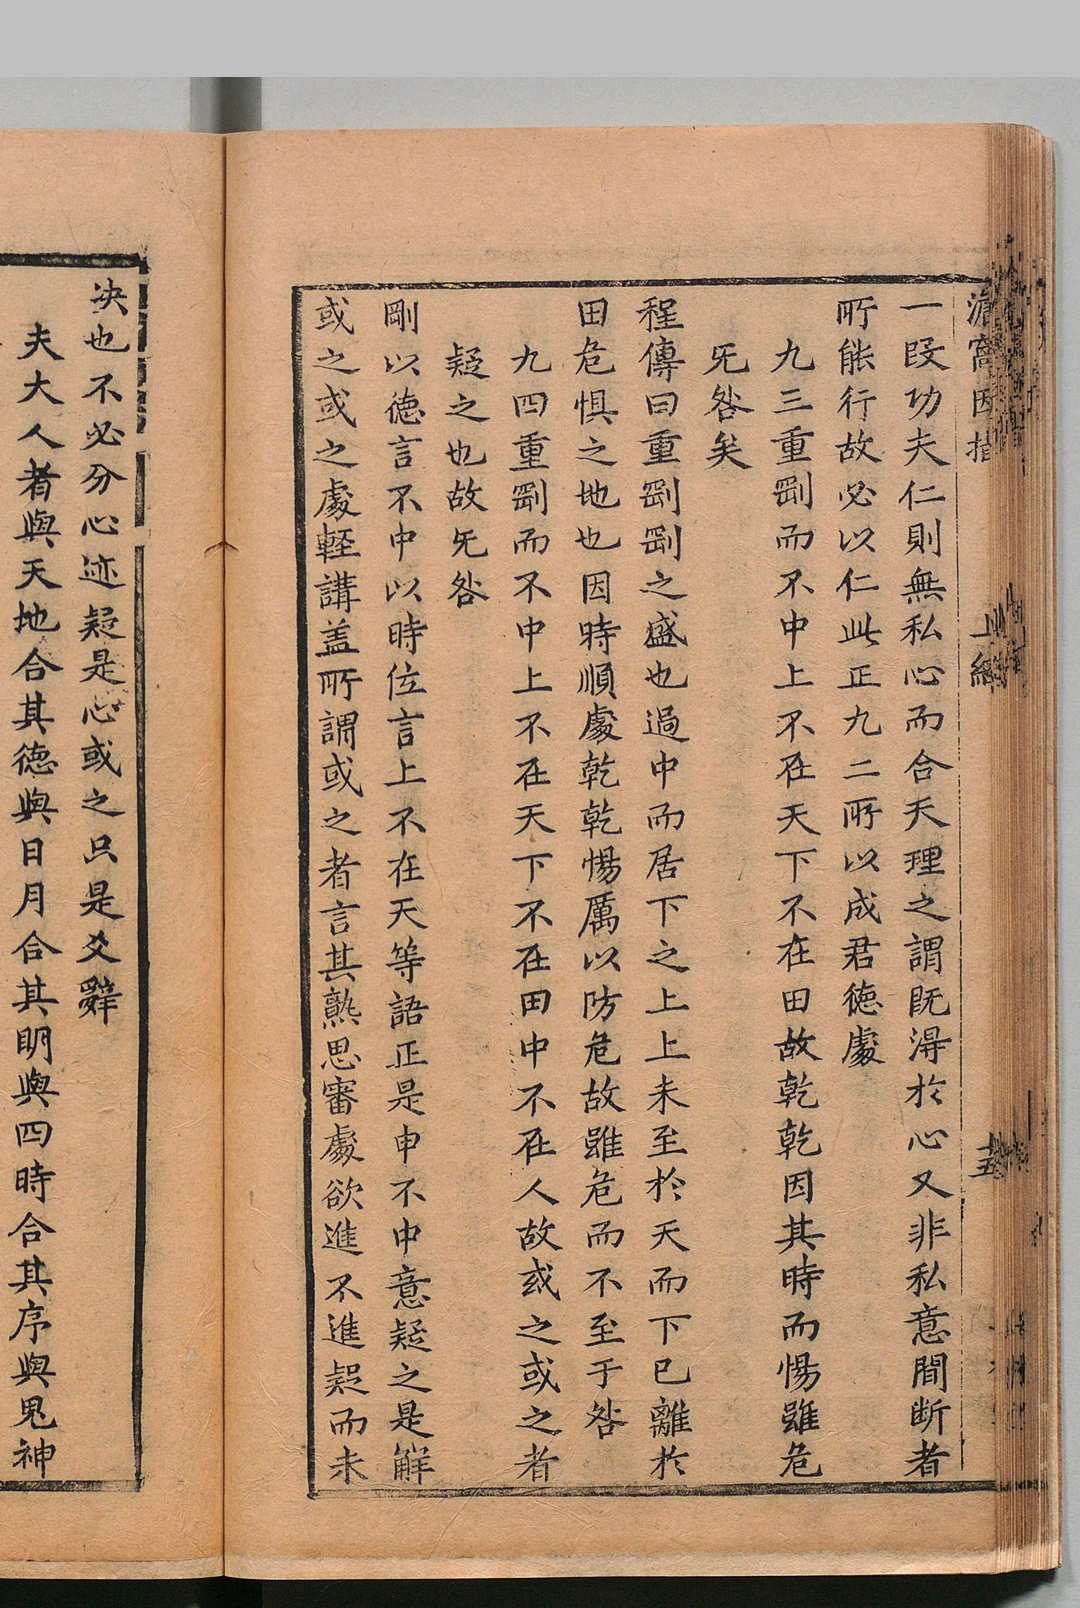 窩因指 上經 五
一段功夫仁則無私心而合天理之謂既淂於心又非私意間断者
所能行故必以仁此正九二所以成君徳處
九三重剛而不中上不在天下不在田故乾乾因其時而惕雖危
旡咎矣
程傳曰重剛剛之盛也過中而居下之上上未至於天而下已離於
田危懼之地也因時順處乾乾惕厲以防危故雖危而不至于咎
九四重剛而不中上不在天下不在田中不在人故或之或之者
疑之也故旡咎
剛以徳言不中以時位言上不在天等語正是申不中意疑之是觧
或之或之處輕講盖所謂或之者言其熟思審處欲進不進疑而未
决也不必分心迹疑是心或之只是爻辭
夫大人者與天地合其徳與日月合其明與四時合其序與鬼神